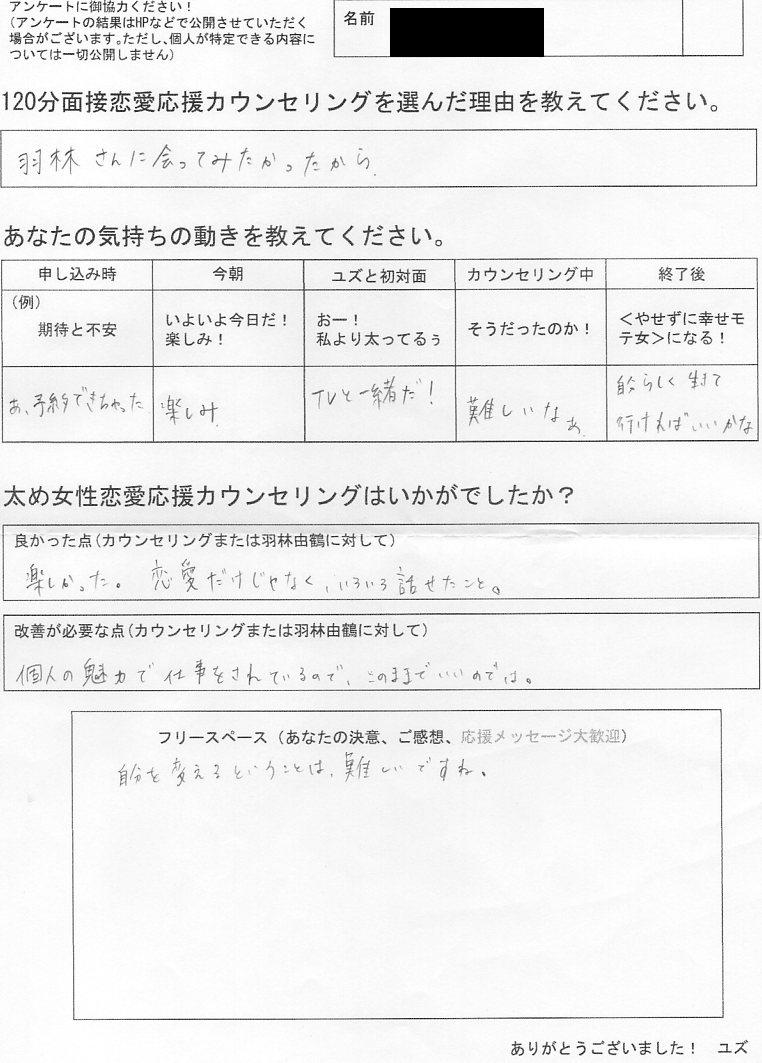 アンケートに御協力ください！
（アンケートの結果はHPなどで公開させていただく
場合がございます。ただし、個人が特定できる内容に
ついては一切公開しません）
名前
120分面接恋愛応援カウンセリングを選んだ理由を教えてください。
羽林さんに会ってみたかったから.
あなたの気持ちの動きを教えてください。
申し込み時 今朝 ユズと初対面 カウンセリング中 終了後
（例）
期待と不安
いよいよ今日だ！
楽しみ！
おー！
私より太ってるぅ
そうだったのか！
＜やせずに幸せモ
テ女＞になる！
あ、予約できちゃった
楽しみ.
TVと一緒だ！
難しいなぁ
自分らしく生きて
行ければいいかな
太め女性恋愛応援カウンセリングはいかがでしたか？
良かった点（カウンセリングまたは羽林由鶴に対して）
楽しかった。恋愛だけじゃなく、いろいろ話せたこと。
改善が必要な点（カウンセリングまたは羽林由鶴に対して）
個人の魅力で仕事をされているので、このままでいいのでは。
フリースペース（あなたの決意、ご感想、応援メッセージ大歓迎）
自分を変えるということは、難しいですね。
ありがとうございました！ ユズ